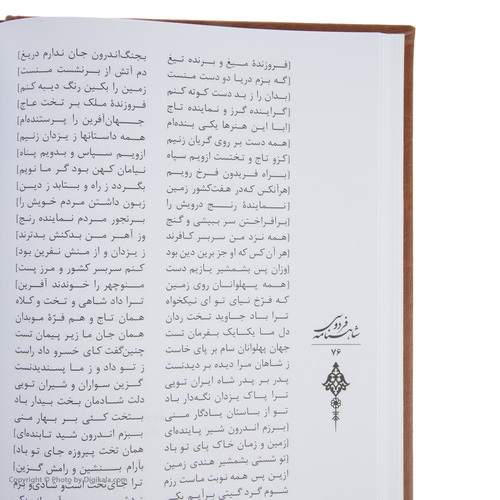 [فروزندهٔ میغ و برنده تیغ بجنگ‌اندرون جان ندارم دریغ]
[گه بزم دریا دو دست منست دم آتش از برنشست منست]
[بدان را ز بد دست کوته کنم زمین را بکین رنگ دیبه کنم]
[گراینده گرز و نماینده تاج فروزندهٔ ملک بر تخت عاج]
[ابا این هنرها یکی بنده‌ام جهان‌آفرین را پرستنده‌ام]
[همه دست بر روی گریان زنیم همه داستانها ز یزدان زنیم]
[کزو تاج و تختست ازویم سپاه ازویم سپاس و بدویم پناه]
[براه فریدون فرخ رویم نیامان کهن بود گر ما نویم]
[هرآنکس که‌در هفت‌کشور زمین بگردد ز راه و بتابد ز دین]
[نمایندهٔ رنج درویش را زبون داشتن مردم خویش را]
[برافراختن سر ببیشی و گنج برنجور مردم نماینده رنج]
[همه نزد من سربسر کافرند وز آهرمن بدکنش بدترند]
[هر آن کس که او جز برین دین بود ز یزدان و از منش نفرین بود]
[وزان پس بشمشیر یازیم دست کنم سربسر کشور و مرز پست]
[همه پهلوانان روی زمین منوچهر را خوندند آفرین]
که فرّخ نیای تو ای نیکخواه ترا داد شاهی و تخت و کلاه
ترا باد جاوید تخت ردان همان تاج و هم فرّهٔ موبدان
دل ما یکایک بفرمان تست همان جان ما زیر پیمان تست
جهان پهلوانان سام بر پای خاست چنین‌گفت کای خسرو داد راست
ز شاهان مرا دیده بر دیدنست ز تو داد و ز ما پسندیدنست
پدر بر پدر شاه ایران تویی گزین سواران و شیران تویی
ترا پاک یزدان نگه‌دار باد دلت شادمان بخت بیدار باد
تو از باستان یادگار منی بتخت کئی بر بهار منی
[برزم اندرون شیر پاینده‌ای ببزم اندرون شید تابنده‌ای]
[زمین و زمان خاک پای تو باد همان تخت پیروزه جای تو باد]
[تو شستی بشمشیر هندی زمین بآرام بنشین و رامش گزین]
ازین پس همه نوبت ماست رزم ترا جای تخت‌است و شادی و بزم
شوم گرد گیتی برایم یکی
شاهنامه فردوسی
۷۶
Copyright © Photo by Digikala.com